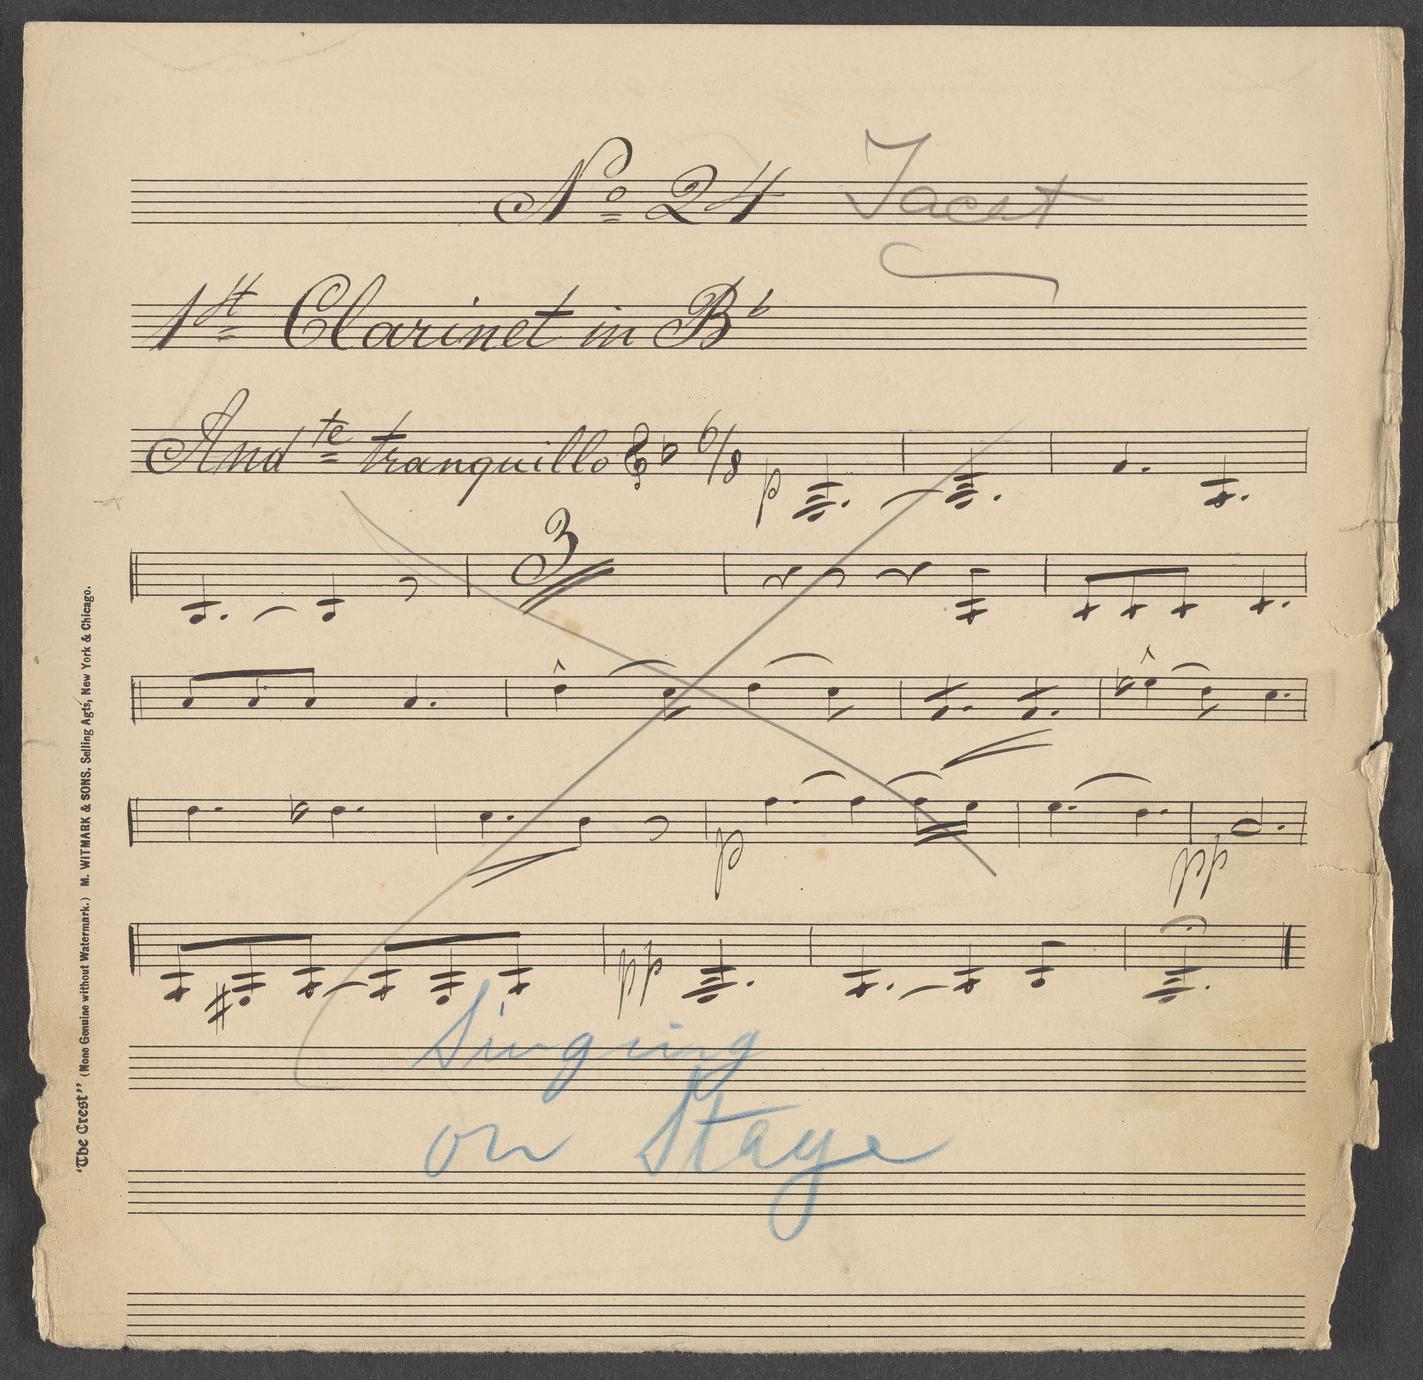 No 24 Tacet
1st Clarinet in Bb
Andte tranquillo 6/8 p
3
p pp
pp
Singing
on Stage
"The Crest" (None Genuine without Watermark.) M. WITMARK & SONS, Selling Agts, New York & Chicago.